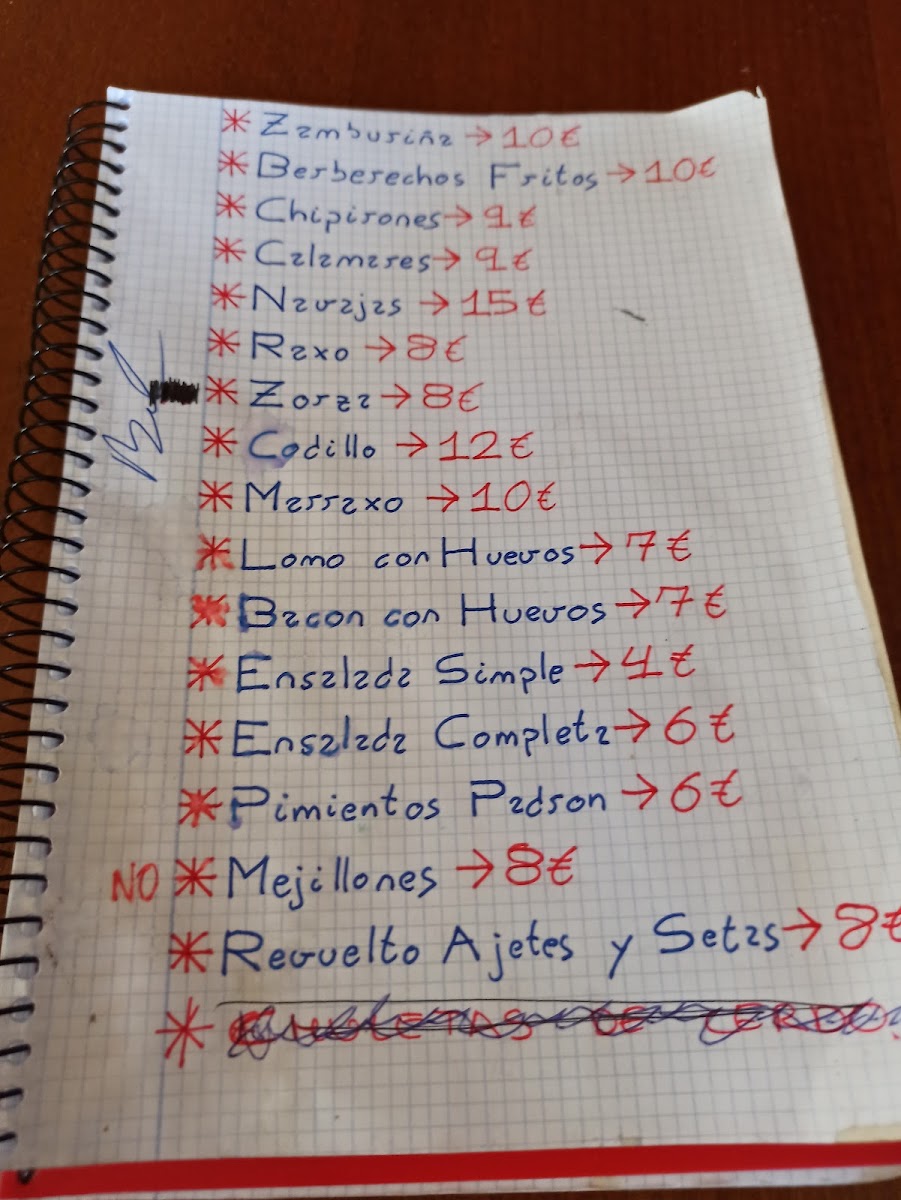 * Zamburiña → 10€
* Berberechos Fritos → 10€
* Chipirones → 9€
* Calamares → 9€
* Navajas → 15€
* Raxo → 8€
* Zorza → 8€
* Codillo → 12€
* Marraxo → 10€
* Lomo con Huevos → 7€
* Bacon con Huevos → 7€
* Ensalada Simple → 4€
* Ensalada Completa → 6€
* Pimientos Padron → 6€
NO * Mejillones → 8€
* Revuelto Ajetes y Setas → 8€
*